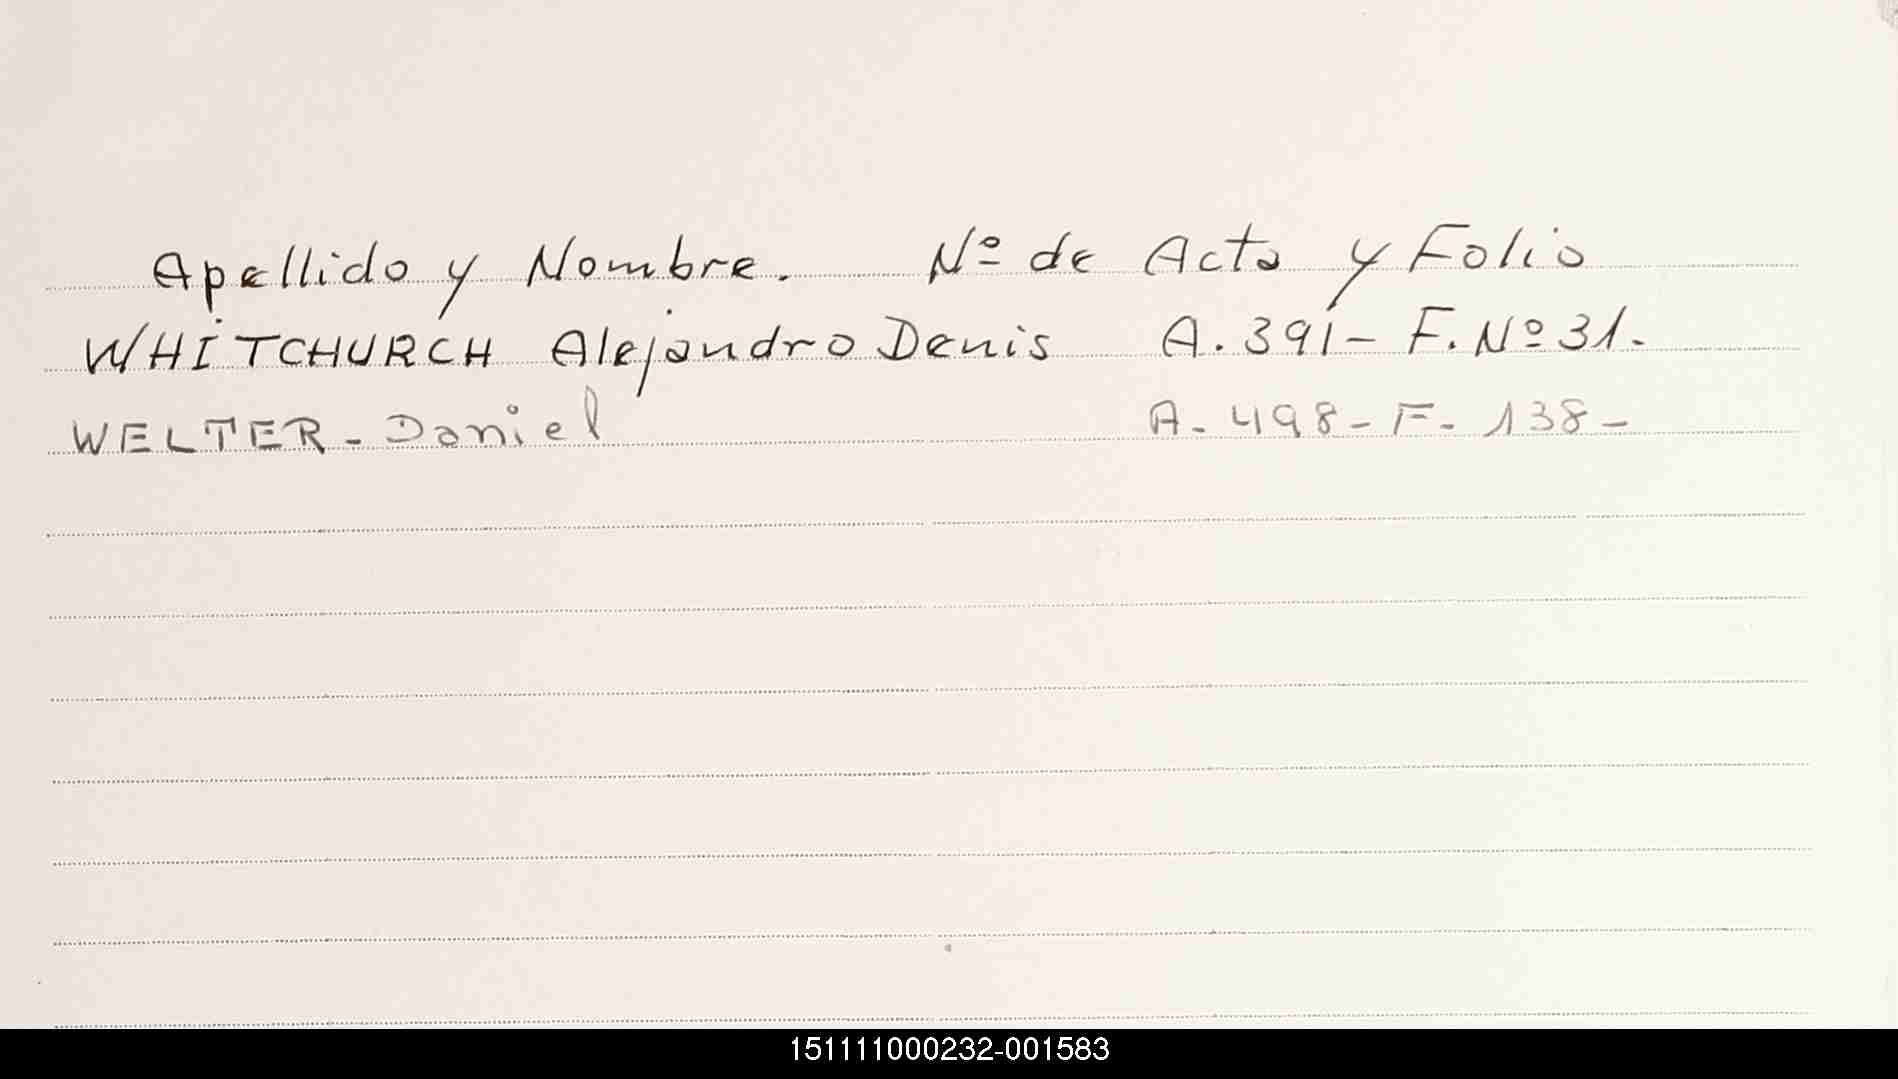 Apellido y Nombre. Nº de Acta y Folio
WHITCHURCH Alejandro Denis A. 391- F. Nº 31.
WELTER - Daniel A - 498 - F - 138 -
151111000232-001583